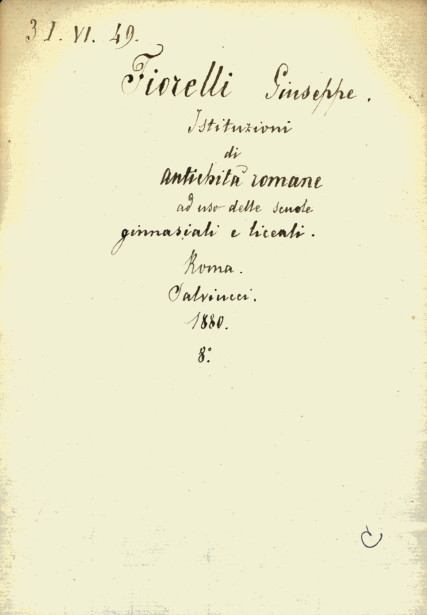 31. VI. 49.
Fiorelli Giuseppe.
Istituzioni
di
antichità romane
ad uso delle scuole
ginnasiali e liceali.
Roma.
Salviucci.
1880.
8°.
C